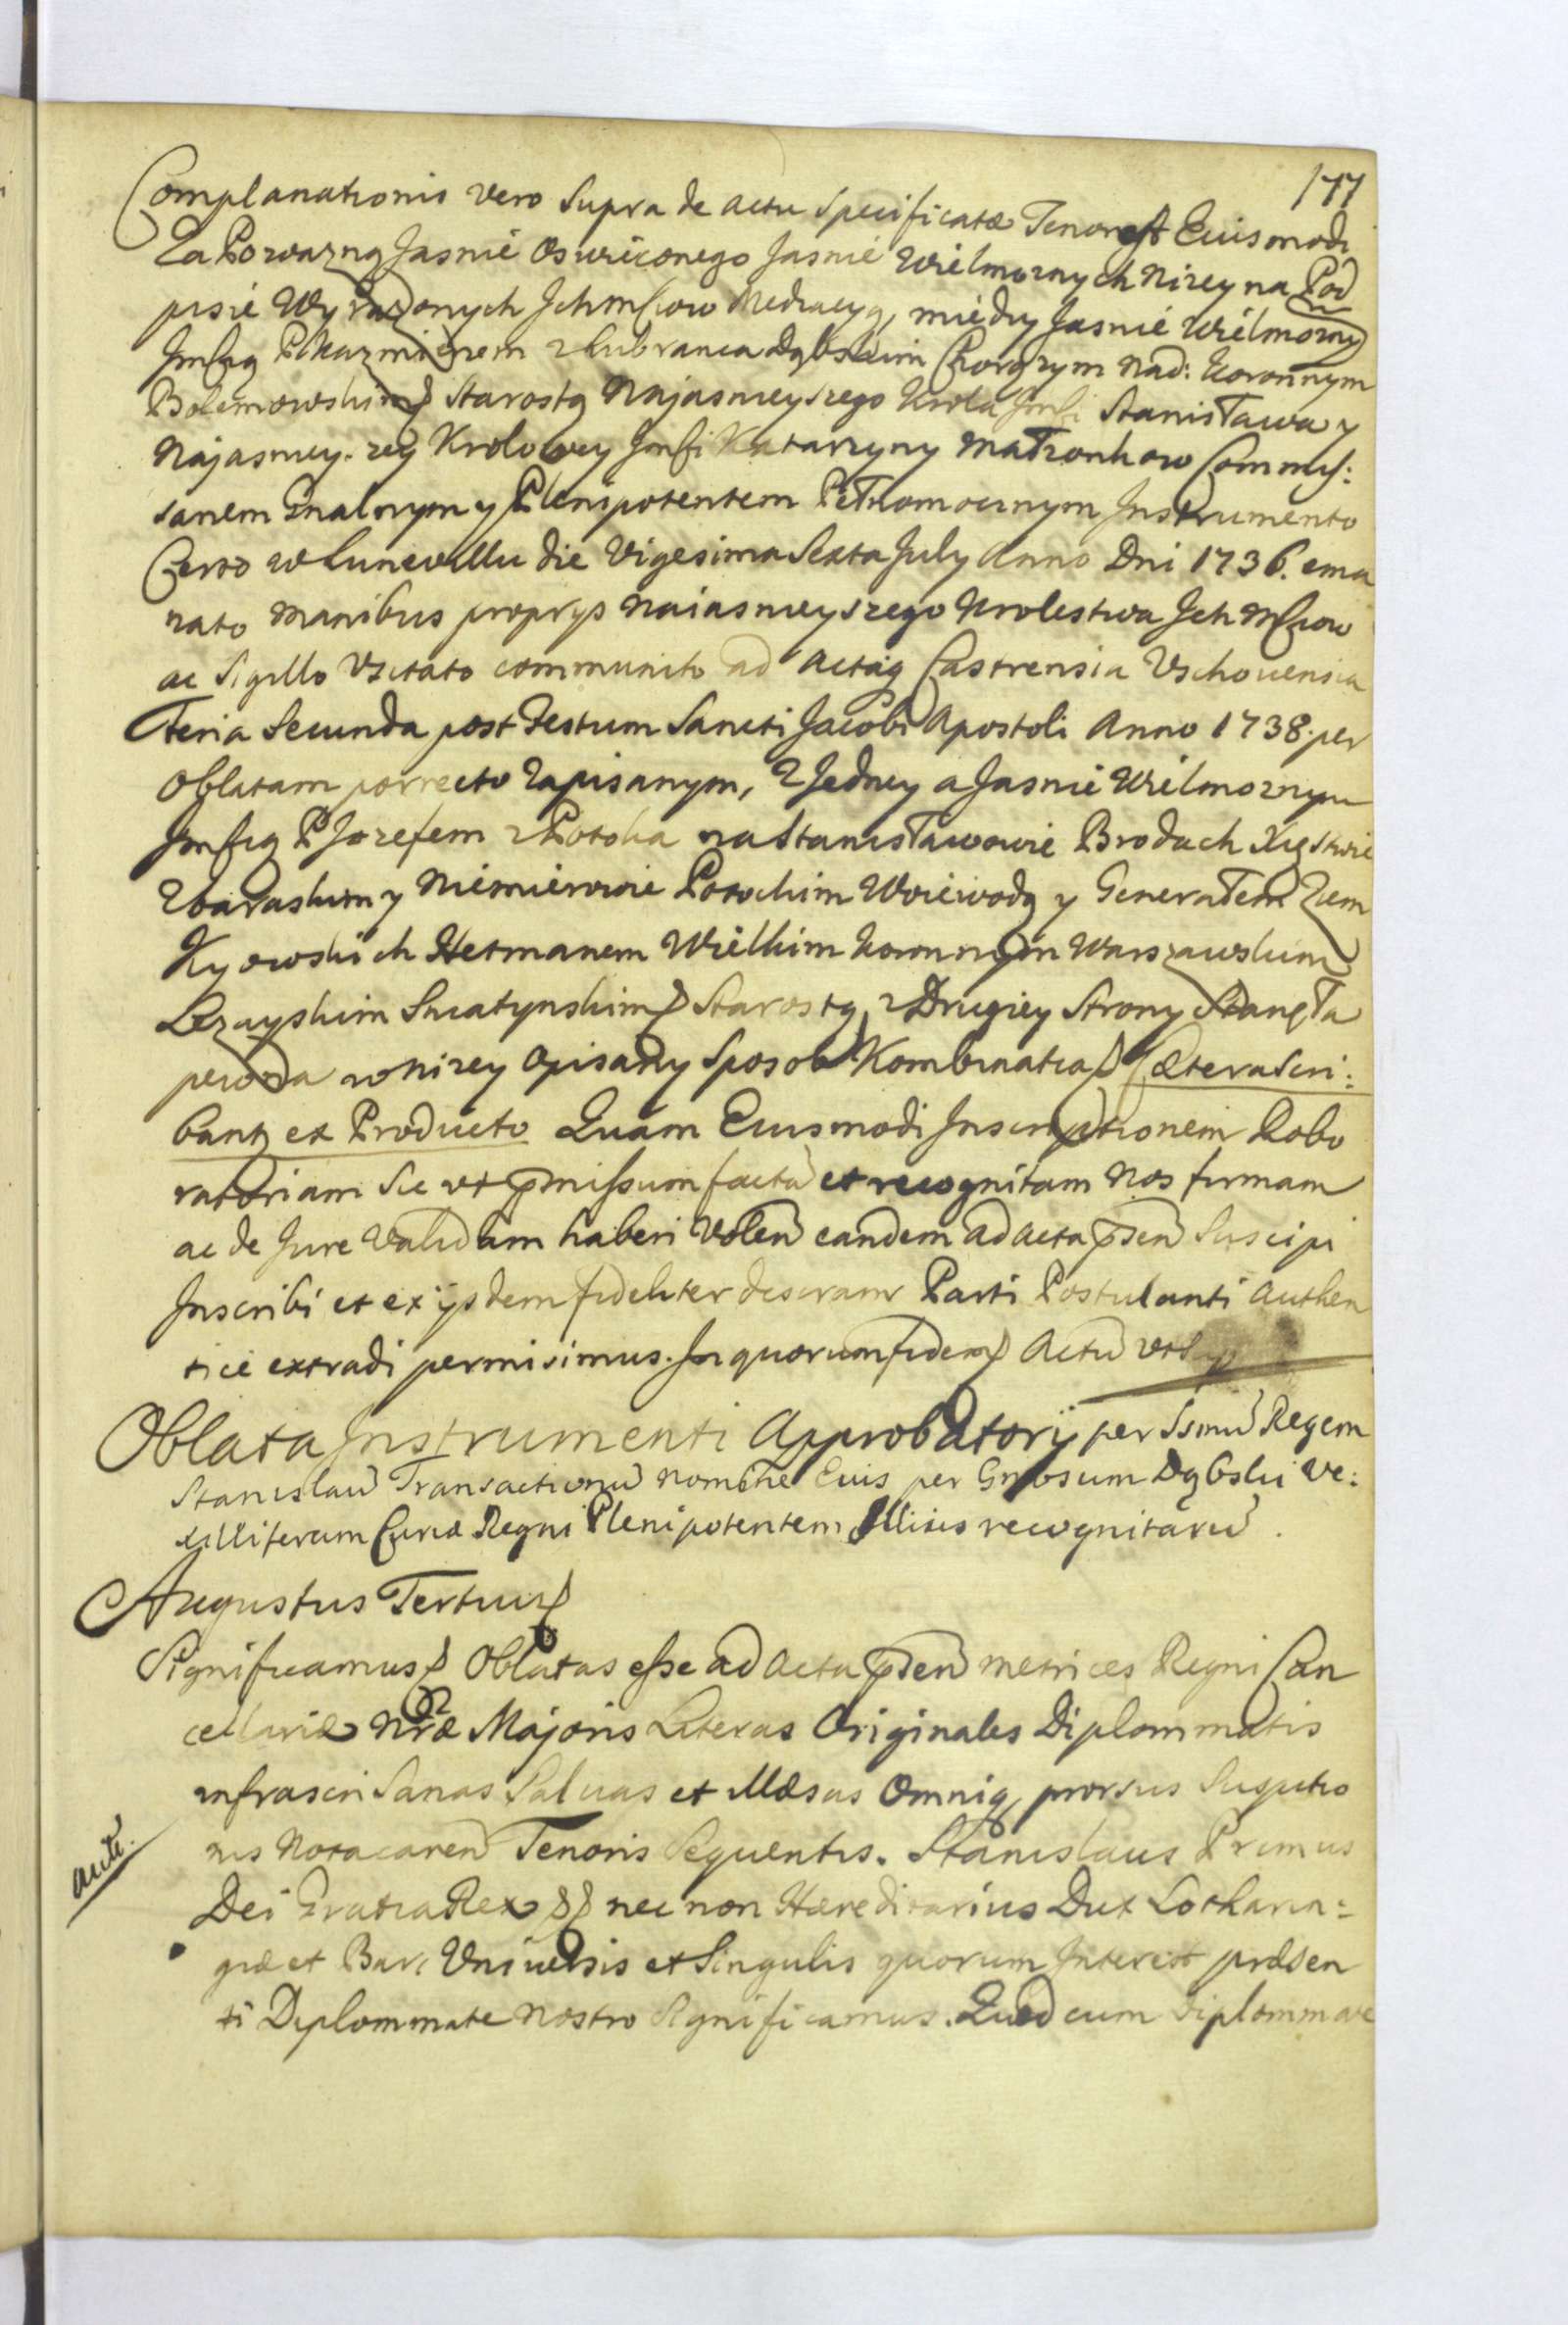 177
Complanationis vero Supra de actu Specificatæ Tenor est Eiusmodi
Za Powazną Jasnie Oswieconego Jasnie Wielmoznych nizey na Pod
pisie Wyrazonych Jchmściow Mediacyą, między Jasnie Wielmoznym
Jmścią P. Kazmierzem z Lubranca Dąbskim Chorązym Nad: Koronnym
Bolemowskim Starostą Najasnieyszego Krola Jmści Stanisława y
Najasniey. szey Krolowey Jmści Katarzyny Małzonkow Commis:
sarzem Gnalnym y Plenipotentem Pełnomocnym Instrumento
Certo w Lunevillu die Vigesima Sexta July Anno Dni 1736. ema
nato manibus propryis Naiasnieyszego Krolestwa Jch Mściow
ac Sigillo Usitato communito ad actaq Castrensia Vschovensia
Feria Secunda post Festum Sancti Jacobi Apostoli Anno 1738. per
Oblatam porrecto Zapisanym, z Jedney a Jasnie Wielmoznym
Jmścią P. Jozefem z Potoka na Stanisławowie Brodach Xięstwie
Zbaraskim y Niemierowie Potockim Woiewodą y Generałem Ziem
Kyowskich Hetmanem Wielkim Koronnym Warszawskim
Lezayskim Sniatynskim Starostą, z Drugiey Strony Stanęła
pewna w nizey Opisany Sposob Kombinatia Cætera Scri:
bantr ex Producto Quam Eiusmodi Inscriptionem Robo
ratoriam Sic ut pmissum facta et recognitam Nos firmam
ac de Jure Validam haberi Volen eandem ad acta psen Suscipi
Inscribi et ex ijsdem fideliter descram Parti Postulanti Authen
tice extradi permisimus. In quorum fidem Actu ut
Oblata Instrumenti Approbatorij per Ssmu Regem
Stanislau Transactionu nomine Eius per Gnosum Dąbski Ve:
xilliferum Curiæ Regni Plenipotentem Illius recognitaru.
Augustus Tertius
Significamus Oblatas esse ad Acta psen metrices Regni Can
cellariæ Nræ Majoris Literas Originales Diplommatis
infrascri Sanas Salvas et Illæsas Omniq prorsus Suspitio
nis Nota caren Tenoris Sequentis. Stanislaus Primus
Dei Gratia Rex nec non Hæreditarius Dux Lotharin:
giæ et Bari Universis et Singulis quorum Interest præsen
ti Diplommate Nostro Significamus. Quod cum Diplommate